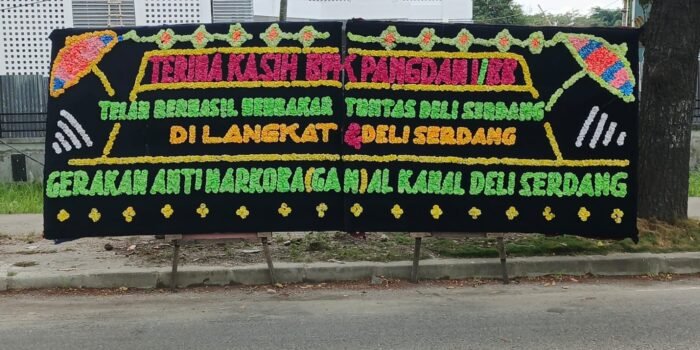 TERIMA KASIH BPK PANGDAM I/BB
TELAH BERHASIL MEMBAKAR TUNTAS DELI SERDANG
DI LANGKAT & DELI SERDANG
GERAKAN ANTI NARKOBA(GAN)AL KANAL DELI SERDANG